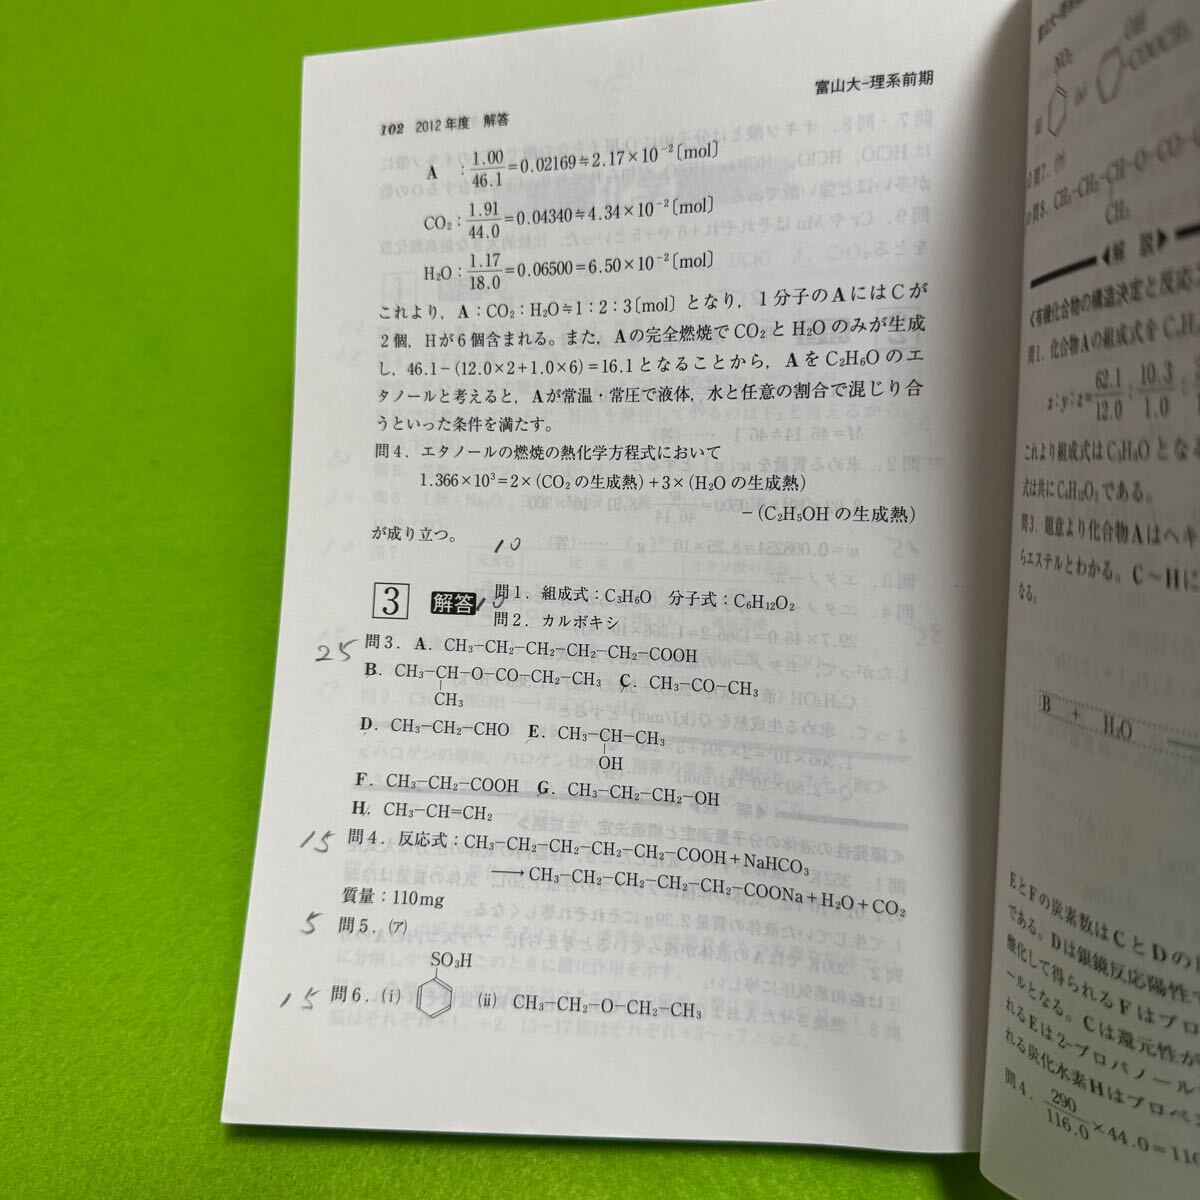 富山大-理系前期
102 2012年度 解答
A : 1.00/46.1=0.02169≒2.17×10⁻²〔mol〕
CO₂ : 1.91/44.0=0.04340≒4.34×10⁻²〔mol〕
H₂O : 1.17/18.0=0.06500=6.50×10⁻²〔mol〕
これより，A：CO₂：H₂O≒1：2：3〔mol〕となり，1分子のAにはCが
2個，Hが6個含まれる。また，Aの完全燃焼でCO₂とH₂Oのみが生成
し，46.1−(12.0×2+1.0×6)=16.1となることから，AをC₂H₆Oのエ
タノールと考えると，Aが常温・常圧で液体，水と任意の割合で混じり合
うといった条件を満たす。
問4．エタノールの燃焼の熱化学方程式において
1.366×10³=2×(CO₂の生成熱)+3×(H₂Oの生成熱)
−(C₂H₅OHの生成熱)
が成り立つ。
10
3 解答 10 問1．組成式：C₃H₆O 分子式：C₆H₁₂O₂
問2．カルボキシ
25 問3．A．CH₃−CH₂−CH₂−CH₂−CH₂−COOH
B．CH₃−CH−O−CO−CH₂−CH₃ C．CH₃−CO−CH₃
CH₃
D．CH₃−CH₂−CHO E．CH₃−CH−CH₃
OH
F．CH₃−CH₂−COOH G．CH₃−CH₂−CH₂−OH
H．CH₃−CH=CH₂
15 問4．反応式：CH₃−CH₂−CH₂−CH₂−CH₂−COOH+NaHCO₃
⟶CH₃−CH₂−CH₂−CH₂−CH₂−COONa+H₂O+CO₂
質量：110mg
5 問5．(ア)
SO₃H
15 問6．(i) (ii) CH₃−CH₂−O−CH₂−CH₃
NO₂
OH
COOCH₃
問7．
問8．CH₃−CH₂−CH−O−CO−
CH₃
解 説
≪有機化合物の構造決定と反応
問1．化合物Aの組成式を
x：y：z=62.1/12.0：10.3/1.0：
これより組成式はC₃H₆Oとなる
式は共にC₆H₁₂O₂である。
問3．題意より化合物Aはヘキ
らエステルとわかる。C〜Hに
なる。
B + H₂O
EとFの炭素数はCとDの
である。Dは銀鏡反応陽性で
酸化して得られるFはプロ
ールとなる。Cは還元性が
れるEは2-プロパノール
れる炭化水素Hはプロペ
問4．290/116.0×44.0=110